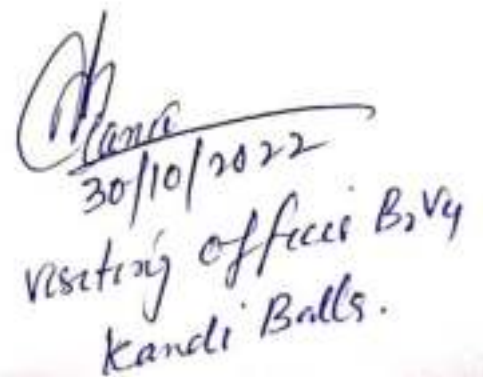 30/10/2022
visiting officer B2V4
Kandi Balla.